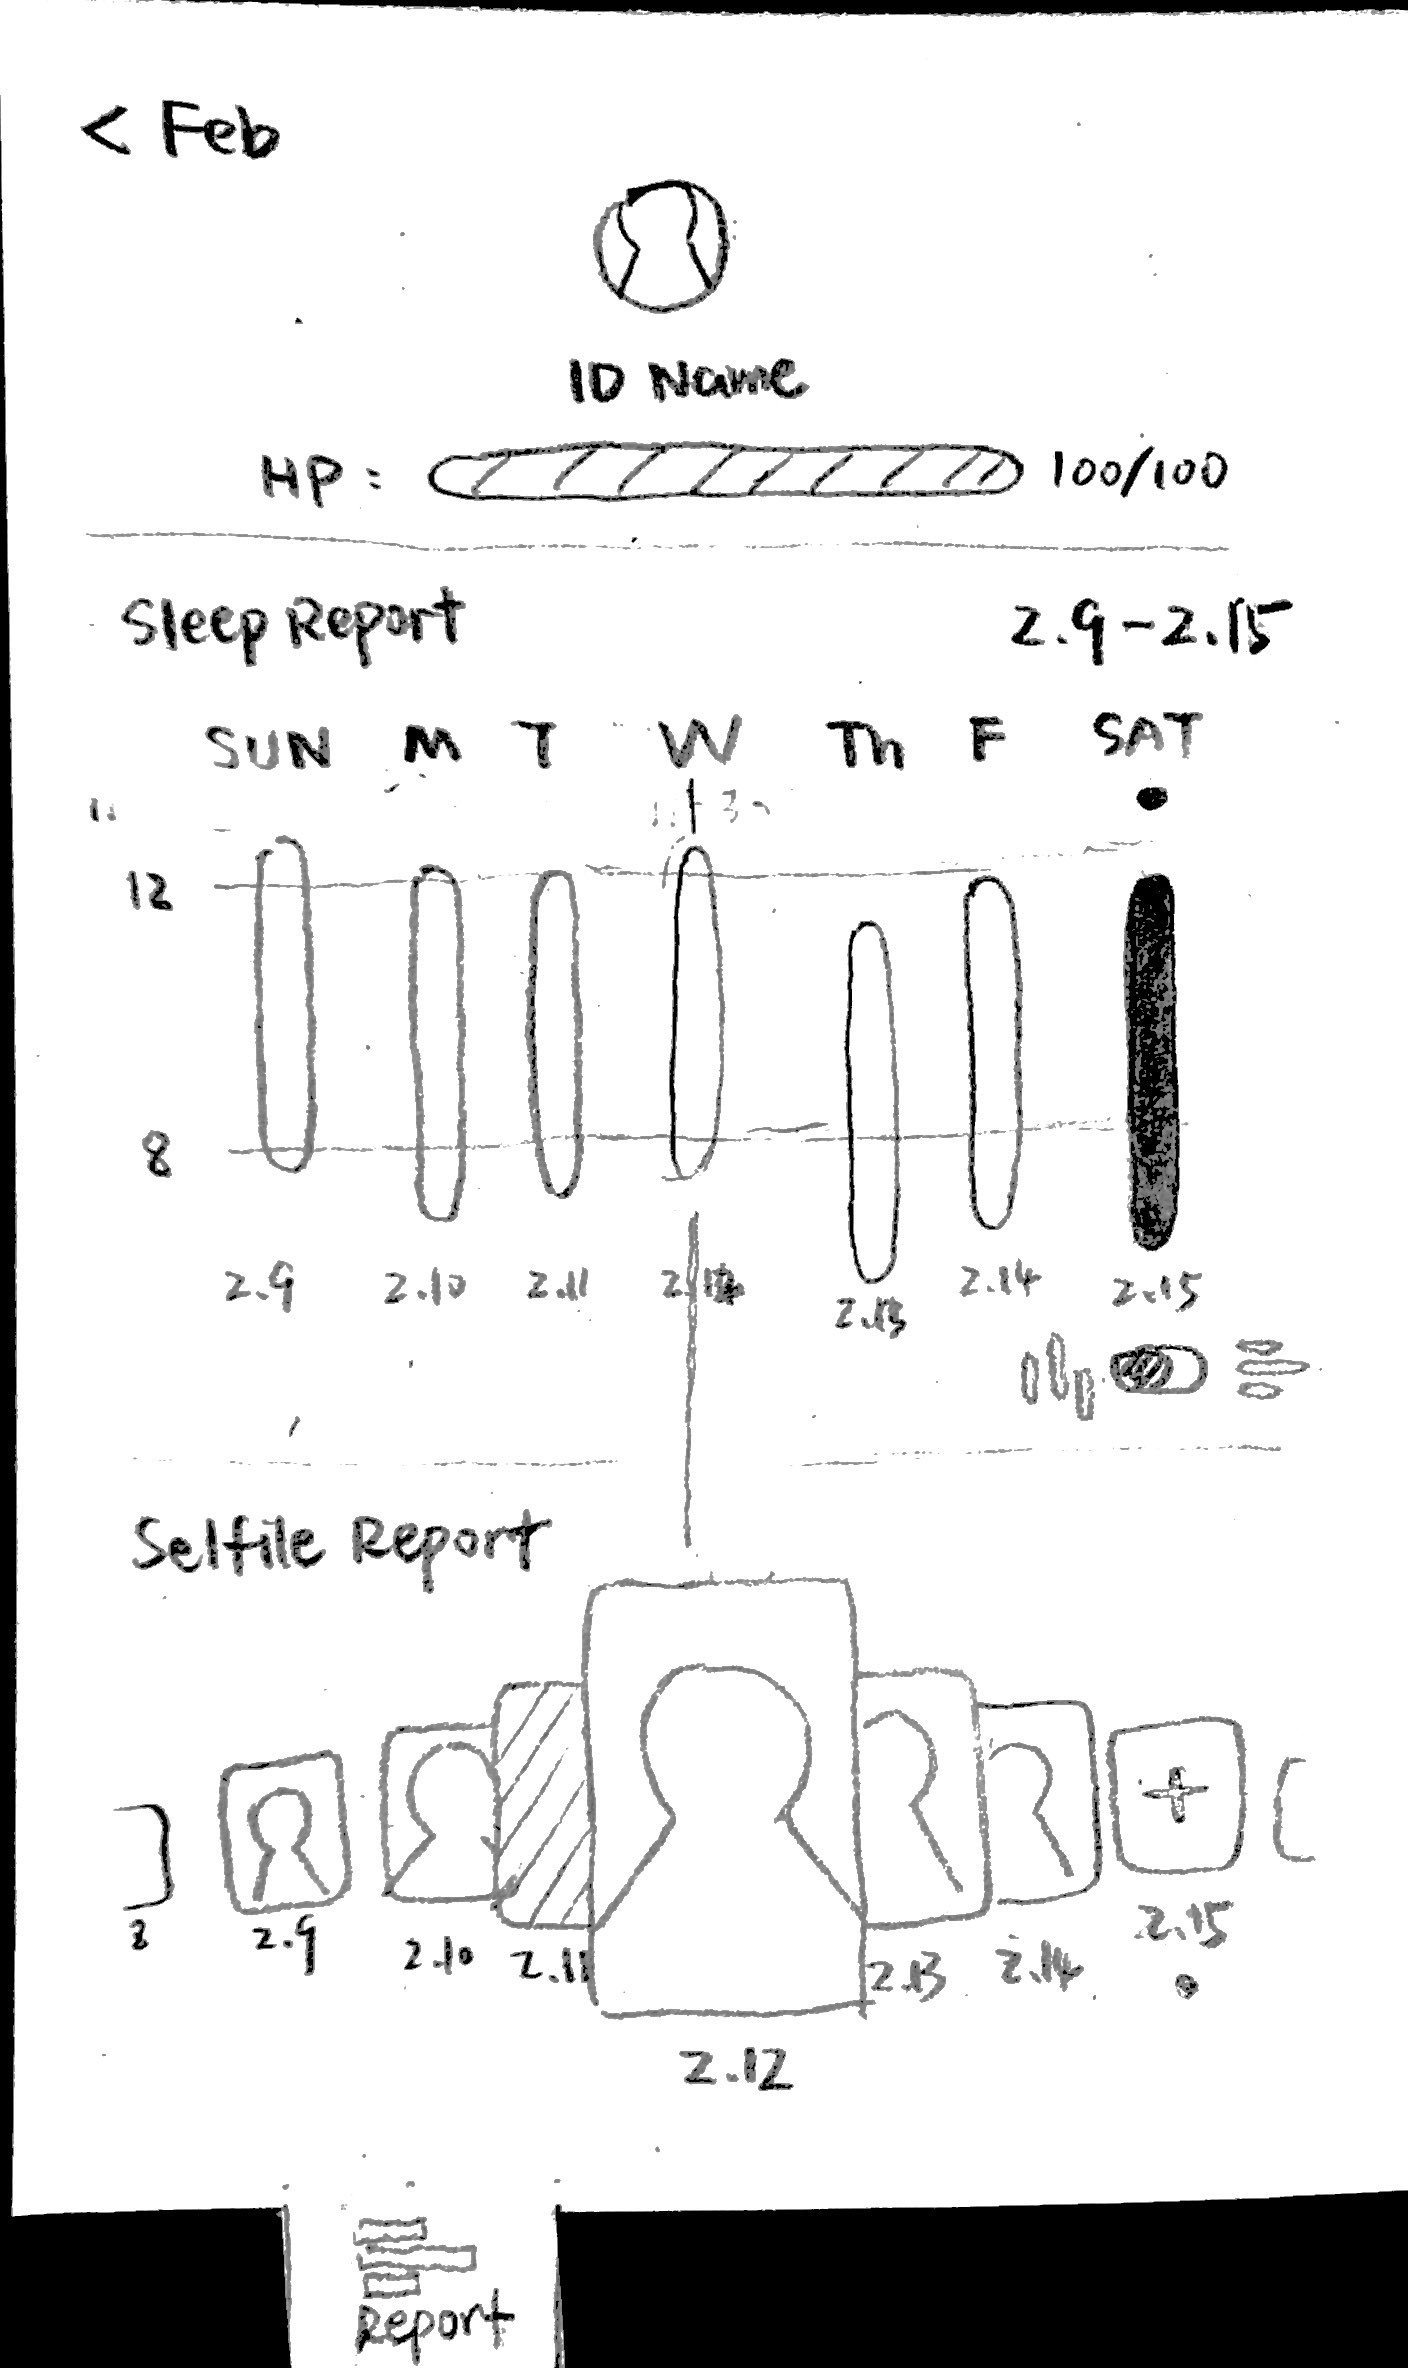 < Feb
ID Name
HP: 100/100
Sleep Report 2.9-2.15
SUN M T W Th F SAT
12
8
2.9 2.10 2.11 2.13 2.14 2.15
Selfile Report
2.9 2.10 2.11 2.13 2.14 2.15
2.12
Report